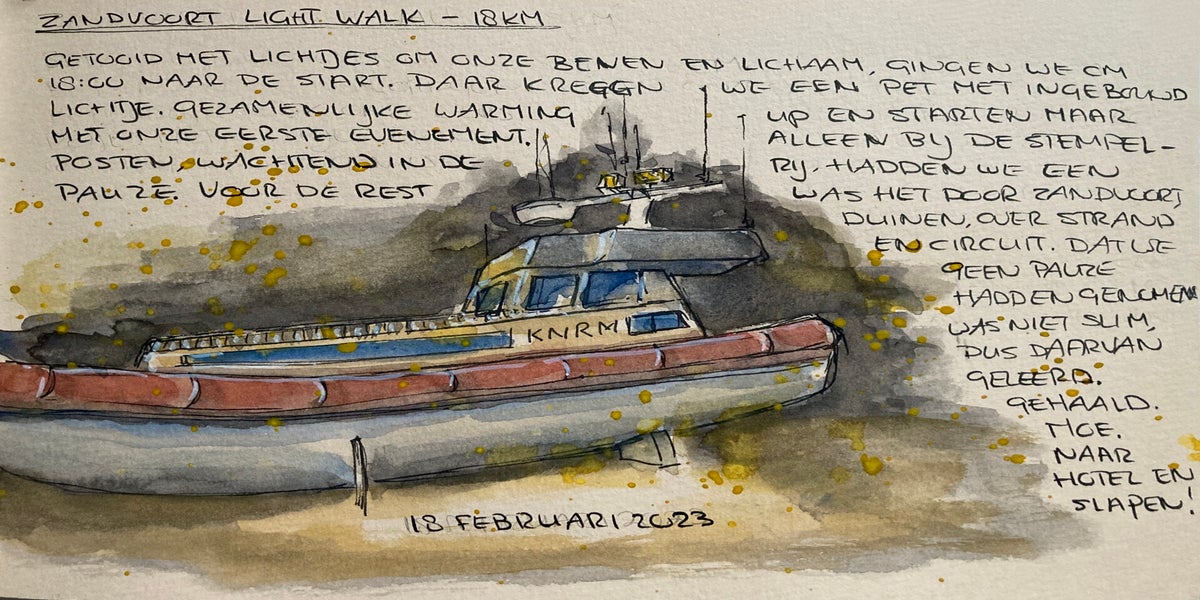 ZANDVOORT LIGHT WALK – 18KM
GETOOID MET LICHTJES OM ONZE BENEN EN LICHAAM, GINGEN WE OM
18:00 NAAR DE START. DAAR KREGEN WE EEN PET MET INGEBOUWD
LICHTJE. GEZAMENLIJKE WARMING UP EN STARTEN MAAR
MET ONZE EERSTE EVENEMENT. ALLEEN BIJ DE STEMPEL-
POSTEN, WACHTEND IN DE RIJ, HADDEN WE EEN
PAUZE. VOOR DE REST WAS HET DOOR ZANDVOORT,
DUINEN, OVER STRAND
EN CIRCUIT. DAT WE
GEEN PAUZE
HADDEN GENOMEN
WAS NIET SLIM,
DUS DAARVAN
GELEERD.
GEHAALD.
MOE.
NAAR
HOTEL EN
SLAPEN!
KNRM
18 FEBRUARI 2023